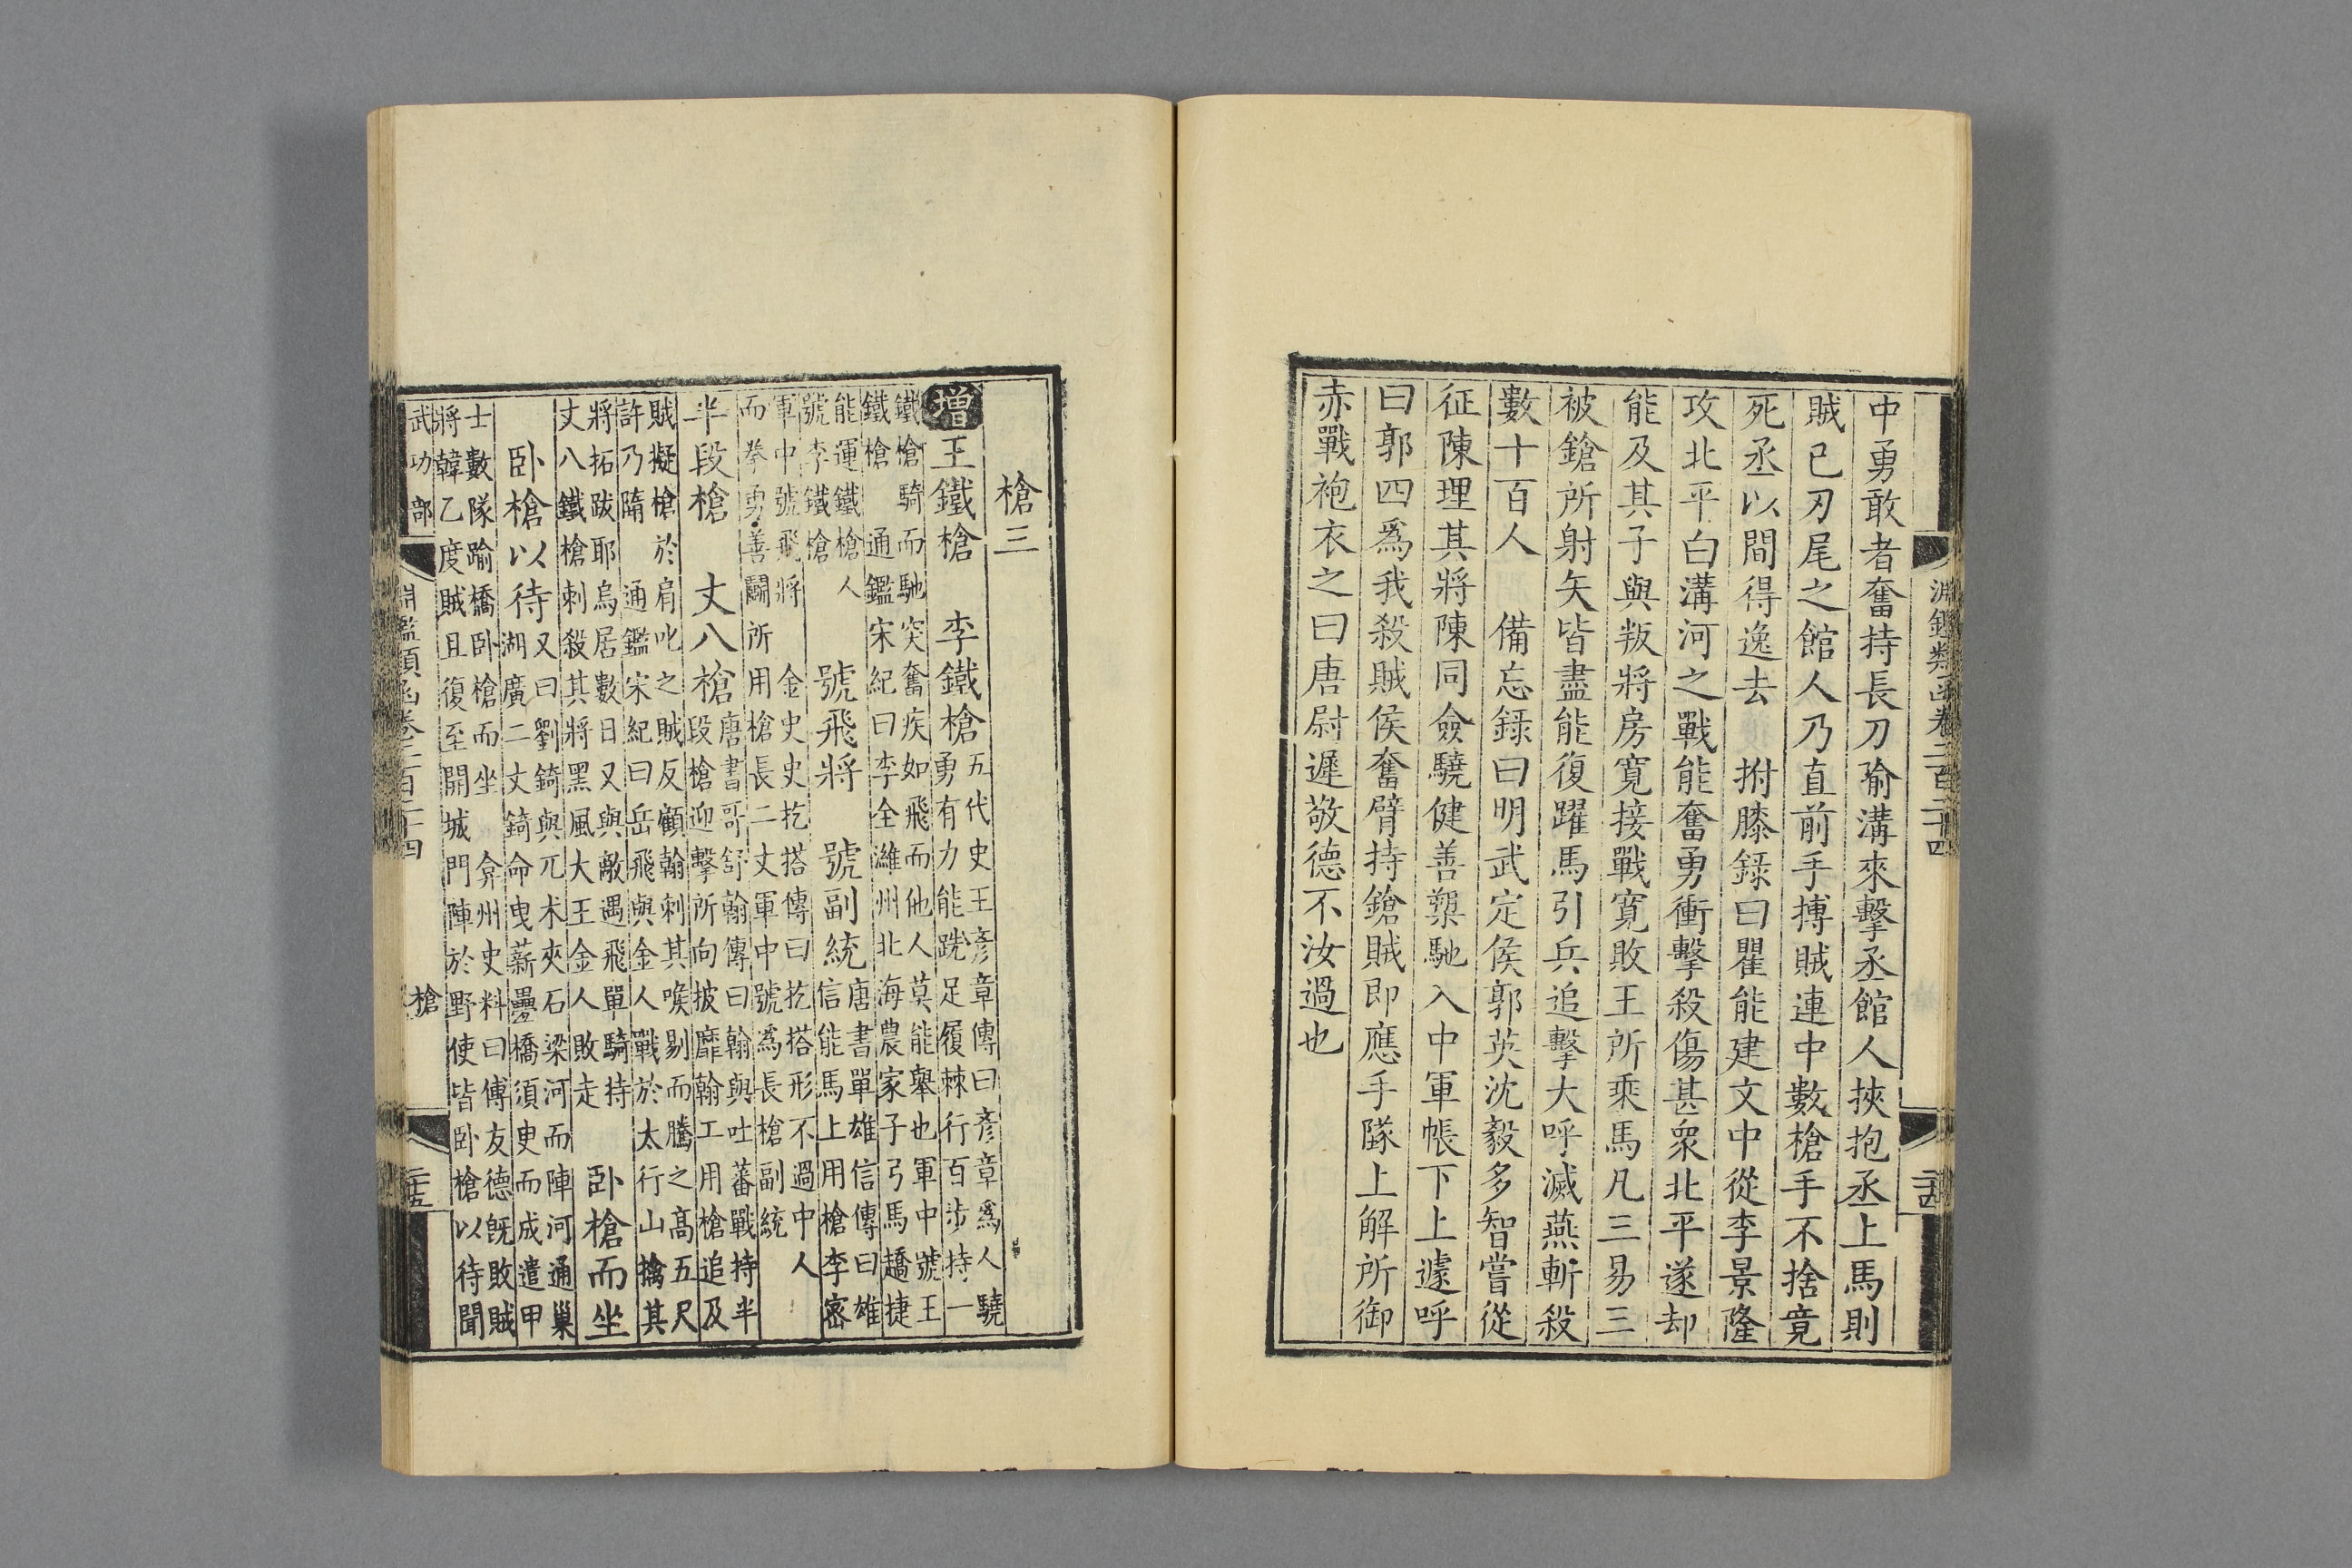 淵鑑類函卷二百二十四
二十四
中勇敢者奮持長刀瑜溝來擊丞館人挾抱丞上馬則
賊已刃尾之館人乃直前手搏賊連中數槍手不捨竟
死丞以間得逸去 拊膝録曰瞿能建文中從李景隆
攻北平白溝河之戰能奮勇衝擊殺傷甚衆北平遂却
能及其子與叛將房寬接戰寬敗王所乘馬凡三易三
被鎗所射矢皆盡能復躍馬引兵追擊大呼滅燕斬殺
數十百人 備忘録曰明武定侯郭英沈毅多智嘗從
征陳理其將陳同僉驍健善槊馳入中軍帳下上遽呼
曰郭四爲我殺賊侯奮臂持鎗賊即應手墜上解所御
赤戰袍衣之曰唐尉遲敬德不汝過也
槍三
增王鐵槍 李鐵槍五代史王彦章傳曰彦章爲人驍
勇有力能跣足履棘行百步持一
鐵槍騎而馳突奮疾如飛而他人莫能舉也軍中號王
鐵槍 通鑑宋紀曰李全濰州北海農家子弓馬趫捷
能運鐵槍人
號李鐵槍
號飛將 號副統唐書單雄信傳曰雄
信能馬上用槍李密
軍中號飛將 金史史扢搭傳曰扢搭形不過中人
而拳勇善鬬所用槍長二丈軍中號爲長槍副統
半段槍 丈八槍唐書哥舒翰傳曰翰與吐蕃戰持半
段槍迎擊所向披靡翰工用槍追及
賊擬槍於肩叱之賊反顧翰刺其喉剔而騰之高五尺
許乃隕 通鑑宋紀曰岳飛與金人戰於太行山擒其
將拓跋耶烏居數日又與敵遇飛單騎持
丈八鐵槍刺殺其將黑風大王金人敗走
卧槍而坐
卧槍以待又曰劉錡與兀朮夾石梁河而陣河通巢
湖廣二丈錡命曳薪疊橋須臾而成遣甲
士數隊踰橋卧槍而坐 弇州史料曰傅友德旣敗賊
將韓乙度賊且復至開城門陣於野使皆卧槍以待聞
武功部
淵鑑類函卷二百二十四
槍
二十五